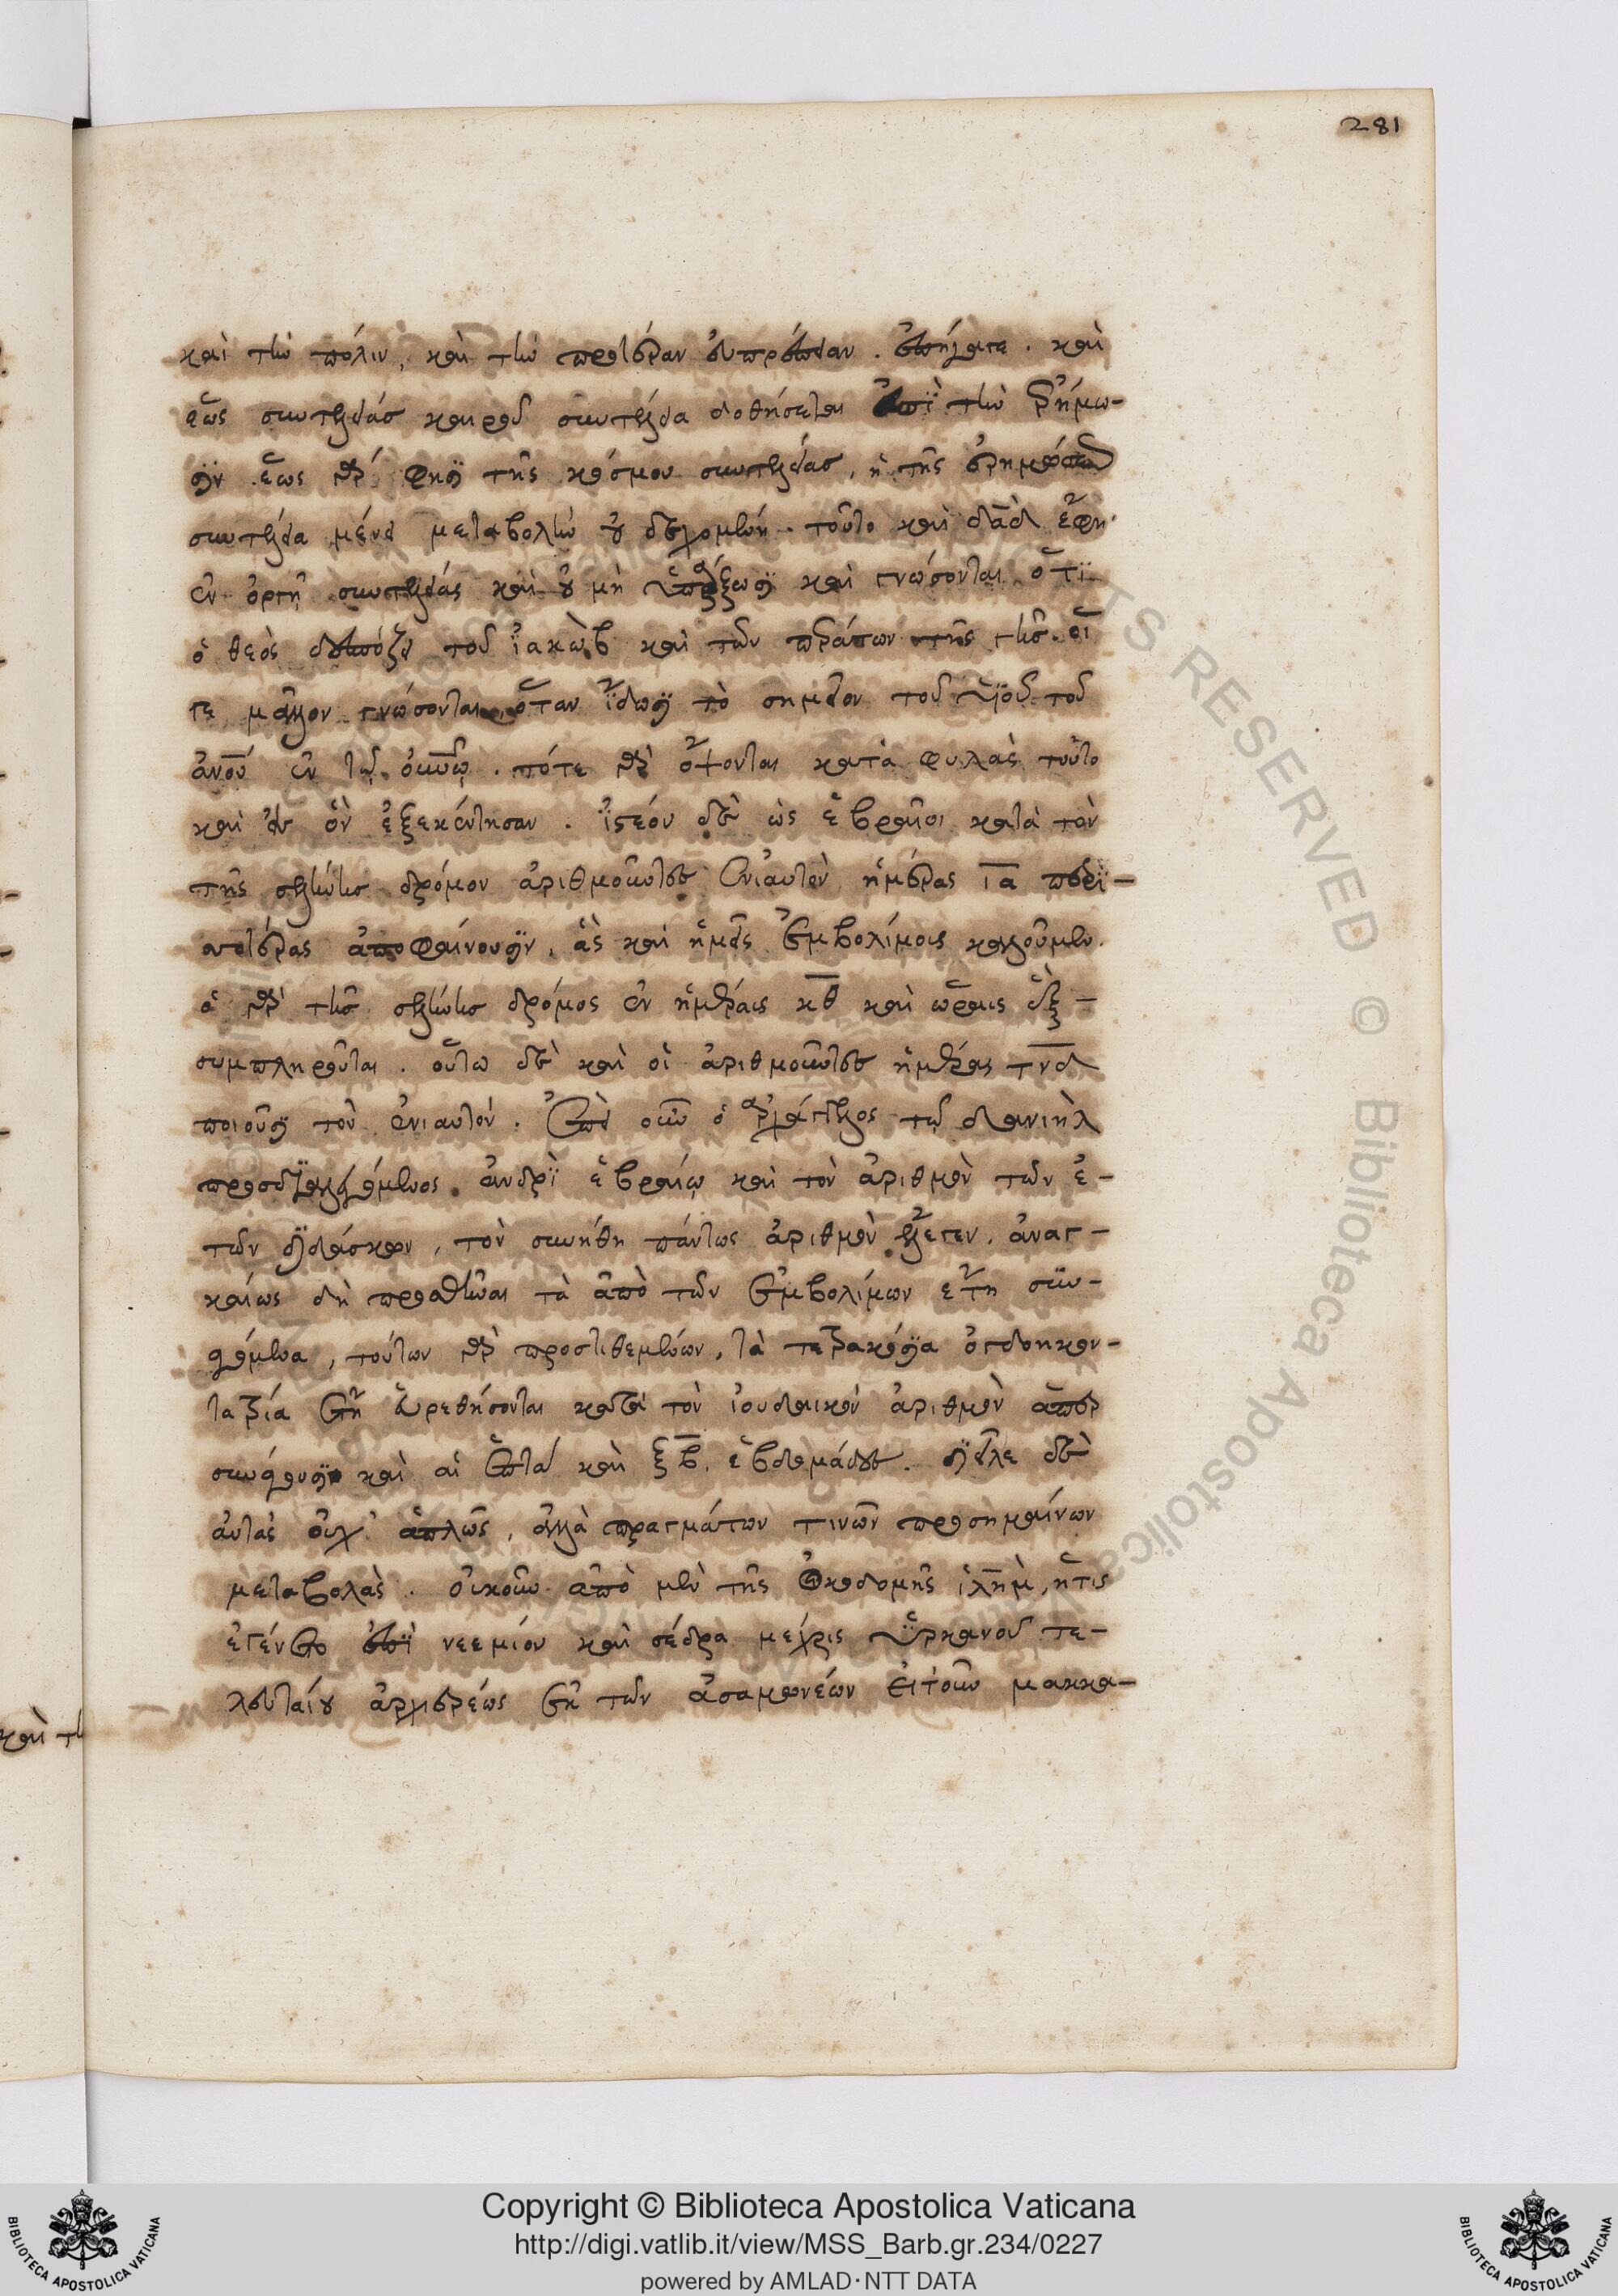 281
καὶ τὴν πόλιν, καὶ τὴν προτέραν εὐπρέπειαν. ἐπήγαγε. καὶ
ἕως συντελείας καιροῦ συντέλεια δοθήσεται ἐπὶ τὴν ἐρήμω-
σιν. ἕως γάρ φησι τῆς κόσμου συντελείας, ἡ τῆς ἐρημώσεως
συντέλεια μένει μεταβολὴν οὐ δεχομένη. τοῦτο καὶ δᾱδ ἔφη.
ἐν ὀργῇ συντελείας καὶ οὐ μὴ ὑπάρξωσι καὶ γνώσονται ὅτι
ὁ θεὸς δεσπόζει τοῦ ἰακὼβ καὶ τῶν περάτων τῆς γῆς. οἵ
γε μᾶλλον γνώσονται, ὅταν ἴδωσι τὸ σημεῖον τοῦ υἱοῦ τοῦ
ἀνου ἐν τῷ οὐνῷ. τότε γὰρ ὄψονται κατὰ φυλὰς τοῦτο
καὶ εἰς ὃν ἐξεκέντησαν. ἰστέον δὲ ὡς ἑβραῖοι κατὰ τὸν
τῆς σελήνης δρόμον ἀριθμοῦντες ἐνιαυτὸν ἡμέρας ια περι-
ττοτέρας ἀποφαίνουσιν, ἃς καὶ ἡμεῖς ἐμβολίμοις καλοῦμεν.
ὁ γὰρ τῆς σελήνης δρόμος ἐν ἡμέραις κθ καὶ ὥραις ἓξ
συμπληροῦται. οὕτω δὲ καὶ οἱ ἀριθμοῦντες ἡμέρας τνδ
ποιοῦσι τὸν ἐνιαυτόν. ἐπεὶ οὖν ὁ ἀρχάγγελος τῷ δανιὴλ
προσδιαλεγόμενος ἀνδρὶ ἑβραίῳ καὶ τὸν ἀριθμὸν τῶν ἐ-
τῶν διδάσκων, τὸν συνήθη πάντως ἀριθμὸν ἔλεγεν. ἀναγ-
καίως δὴ προσθεῖναι τὰ ἀπὸ τῶν ἐμβολίμων ἔτη συν-
γόμενα, τούτων γὰρ προστιθεμένων, τὰ τετρακόσια ὀγδοηκον-
τατρία ἔτη εὑρεθήσονται κατὰ τὸν ἰουδαικὸν ἀριθμὸν ἅπερ
συνάγουσι καὶ αἱ ἑπτὰ καὶ ξβ. ἑβδομάδες. διεῖλε δὲ
αὐτὰς οὐχ ἁπλῶς, ἀλλὰ πραγμάτων τινῶν προσημαίνων
μεταβολὰς. οὐκοῦν ἀπὸ μὲν τῆς οἰκοδομῆς ἱλῆμ, ἥτις
ἐγένετο ἐπὶ νεεμίου καὶ σέδρα μέχρις ὑρκανοῦ τε-
λευταίου ἀρχιερέως ἐκ τῶν ἀσαμωνέων εἰτοῦν μακκα-
καὶ τὴ
Copyright © Biblioteca Apostolica Vaticana
http://digi.vatlib.it/view/MSS_Barb.gr.234/0227
powered by AMLAD·NTT DATA